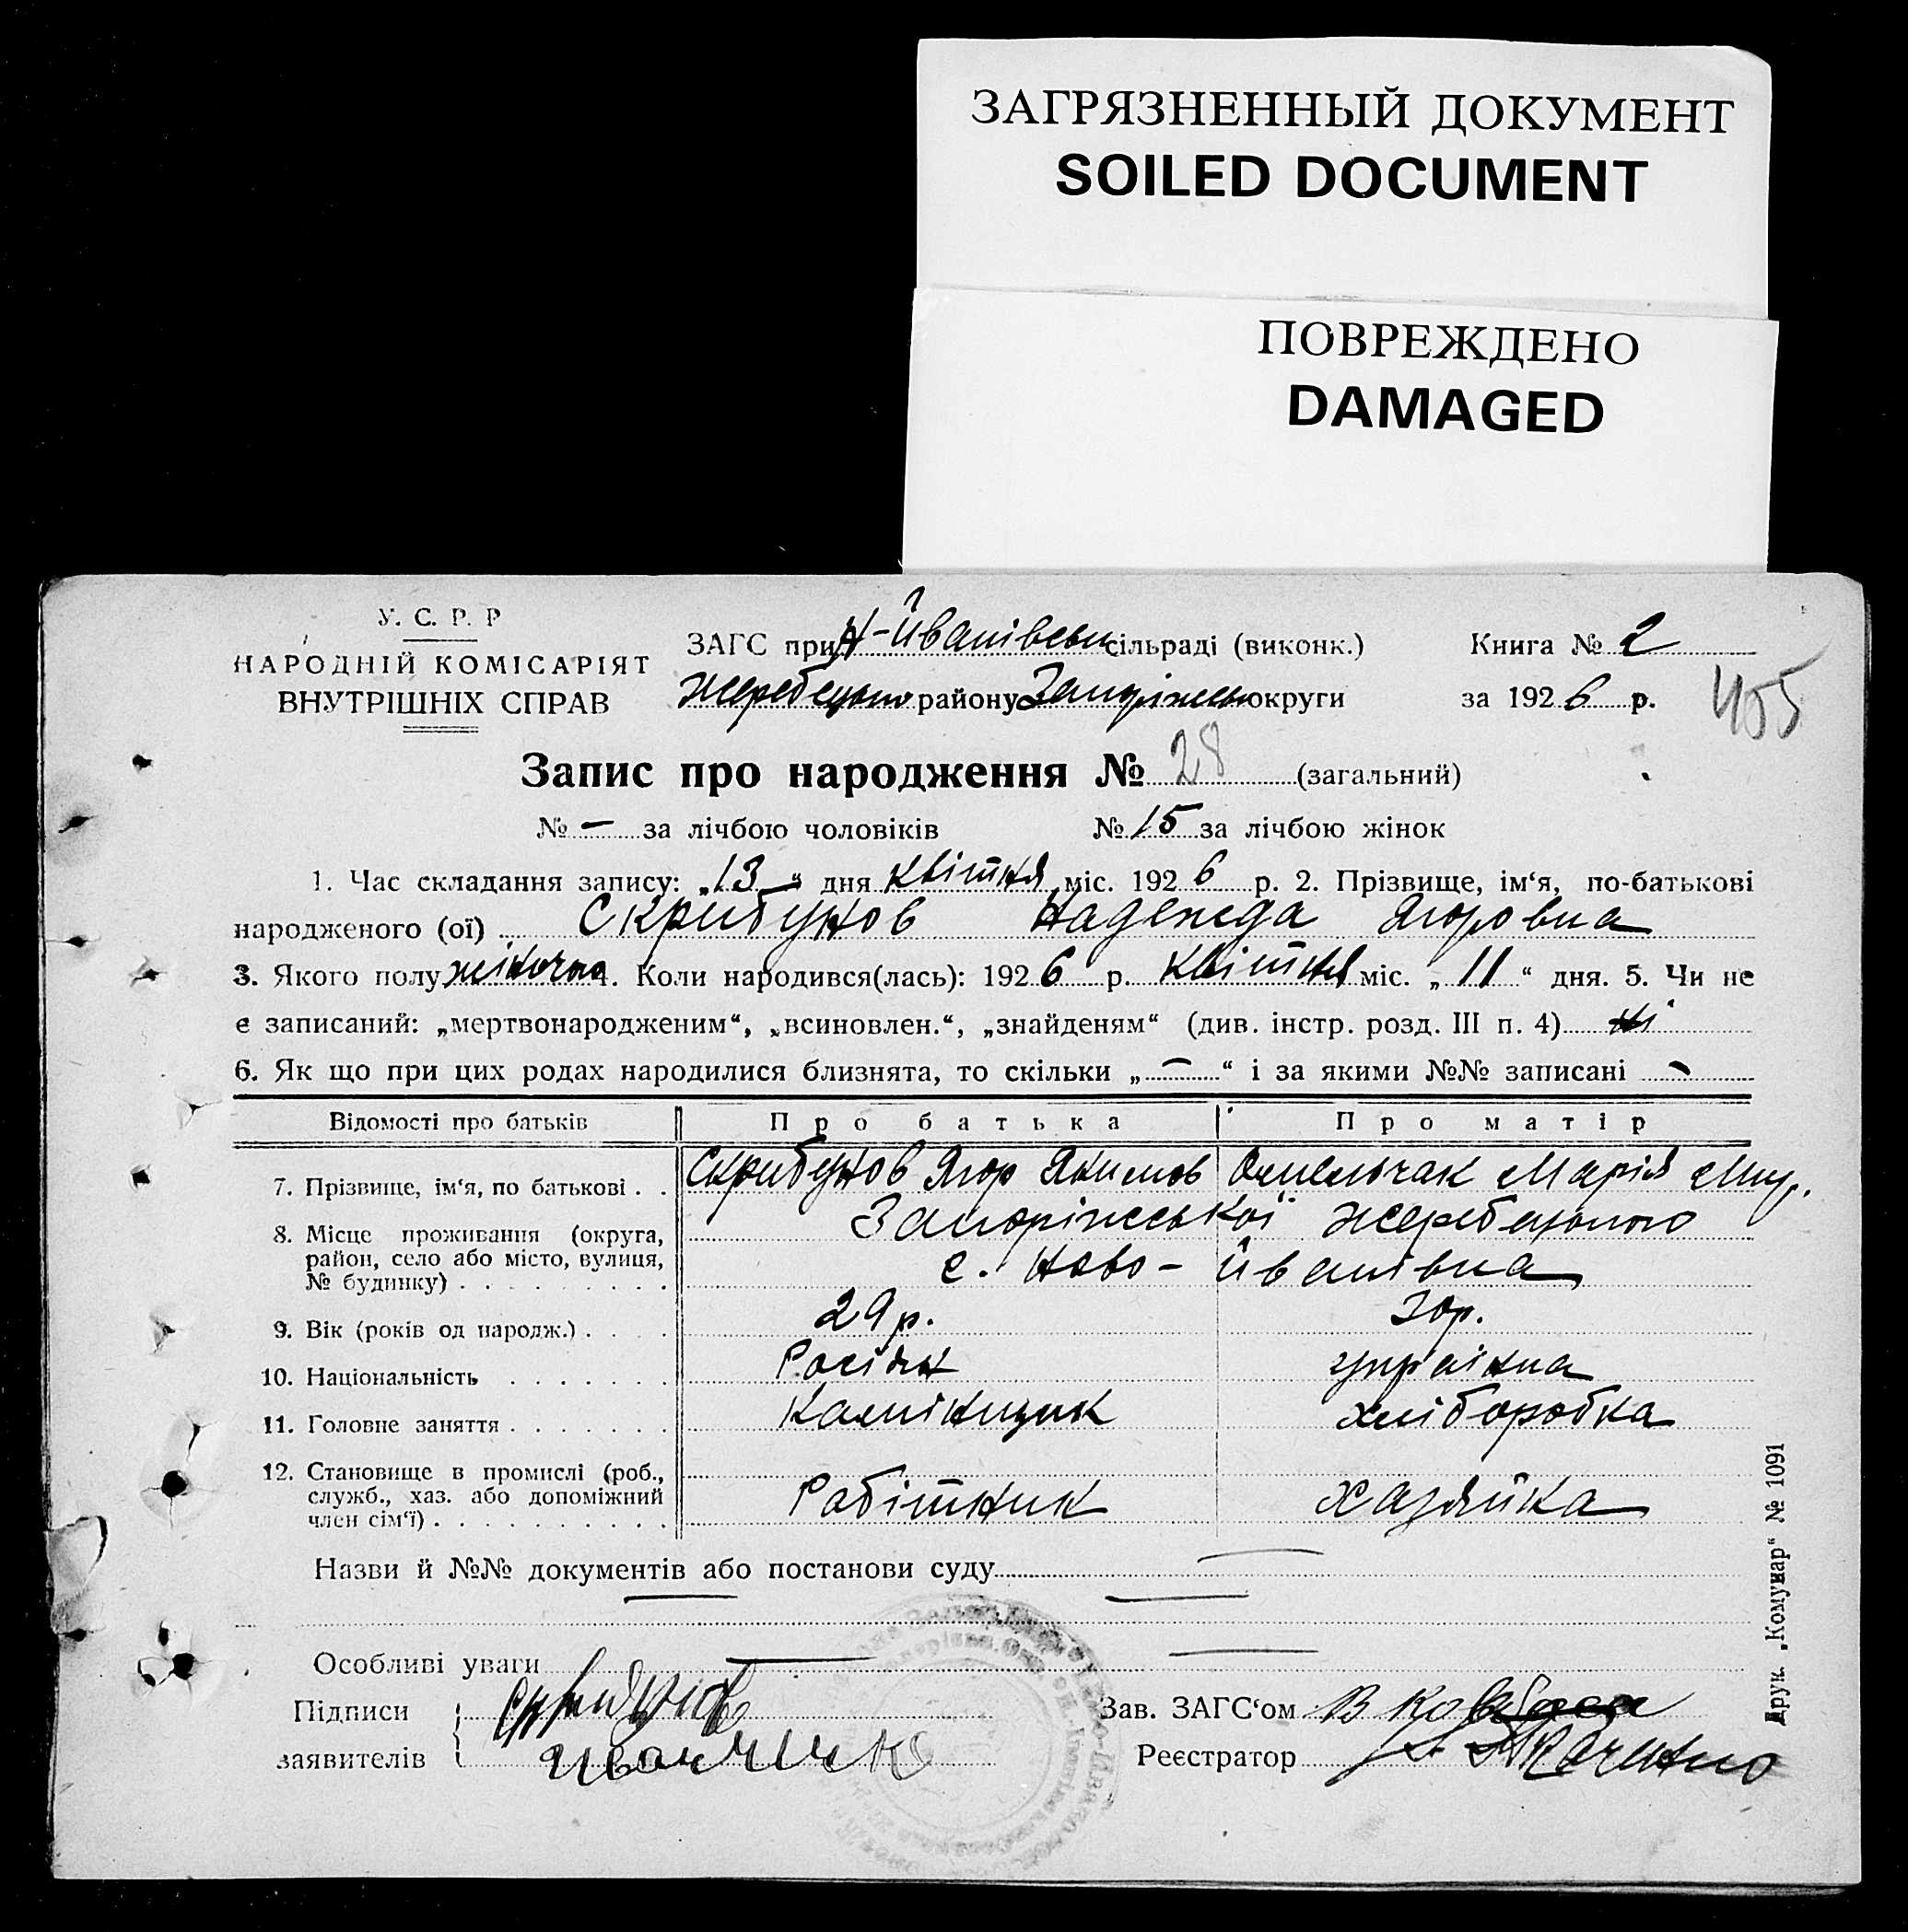 ЗАГРЯЗНЕННЫЙ ДОКУМЕНТ
SOILED DOCUMENT
ПОВРЕЖДЕНО
DAMAGED
У. С. Р. Р
НАРОДНІЙ КОМІСАРІЯТ
ВНУТРІШНІХ СПРАВ
ЗАГС при Н-Йванівськ сільраді (виконк.)
Книга № 2
Жеребецького району Запоріжськ округи
за 1926 р.
455
Запис про народження № 28 (загальний)
№ — за лічбою чоловіків № 15 за лічбою жінок
1. Час складання запису: „13“ дня квітня міс. 1926 р. 2. Прізвище, ім‘я, по-батькові
народженого (ої) Скрибунов Надежда Ягоровна
3. Якого полу жіночого 4. Коли народився(лась): 1926 р. квітня міс. „11“ дня. 5. Чи не
є записаний: „мертвонародженим“, „всиновлен.“, „знайденям“ (див. інстр. розд. III п. 4) ні
6. Як що при цих родах народилися близнята, то скільки „—“ і за якими №№ записані —
Відомості про батьків Про батька Про матір
7. Прізвище, ім‘я, по батькові . . Скрибунов Ягор Якимов Омельчак Марія
8. Місце проживання (округа, район, село або місто, вулиця, № будинку) Запоріжської Жеребецького
с. Ново-Йванівка
9. Вік (років од народж.) 29 р. 30 р.
10. Національність Росіян україїнка
11. Головне заняття Камінщик хліборобка
12. Становище в промислі (роб., служб., хаз. або допоміжний член сім‘ї) Робітник хазяйка
Назви й №№ документів або постанови суду
Особливі уваги
Підписи
заявителів
Скрибунов
Зав. ЗАГС‘ом
Реєстратор
Друк. „Комунар“ № 1091